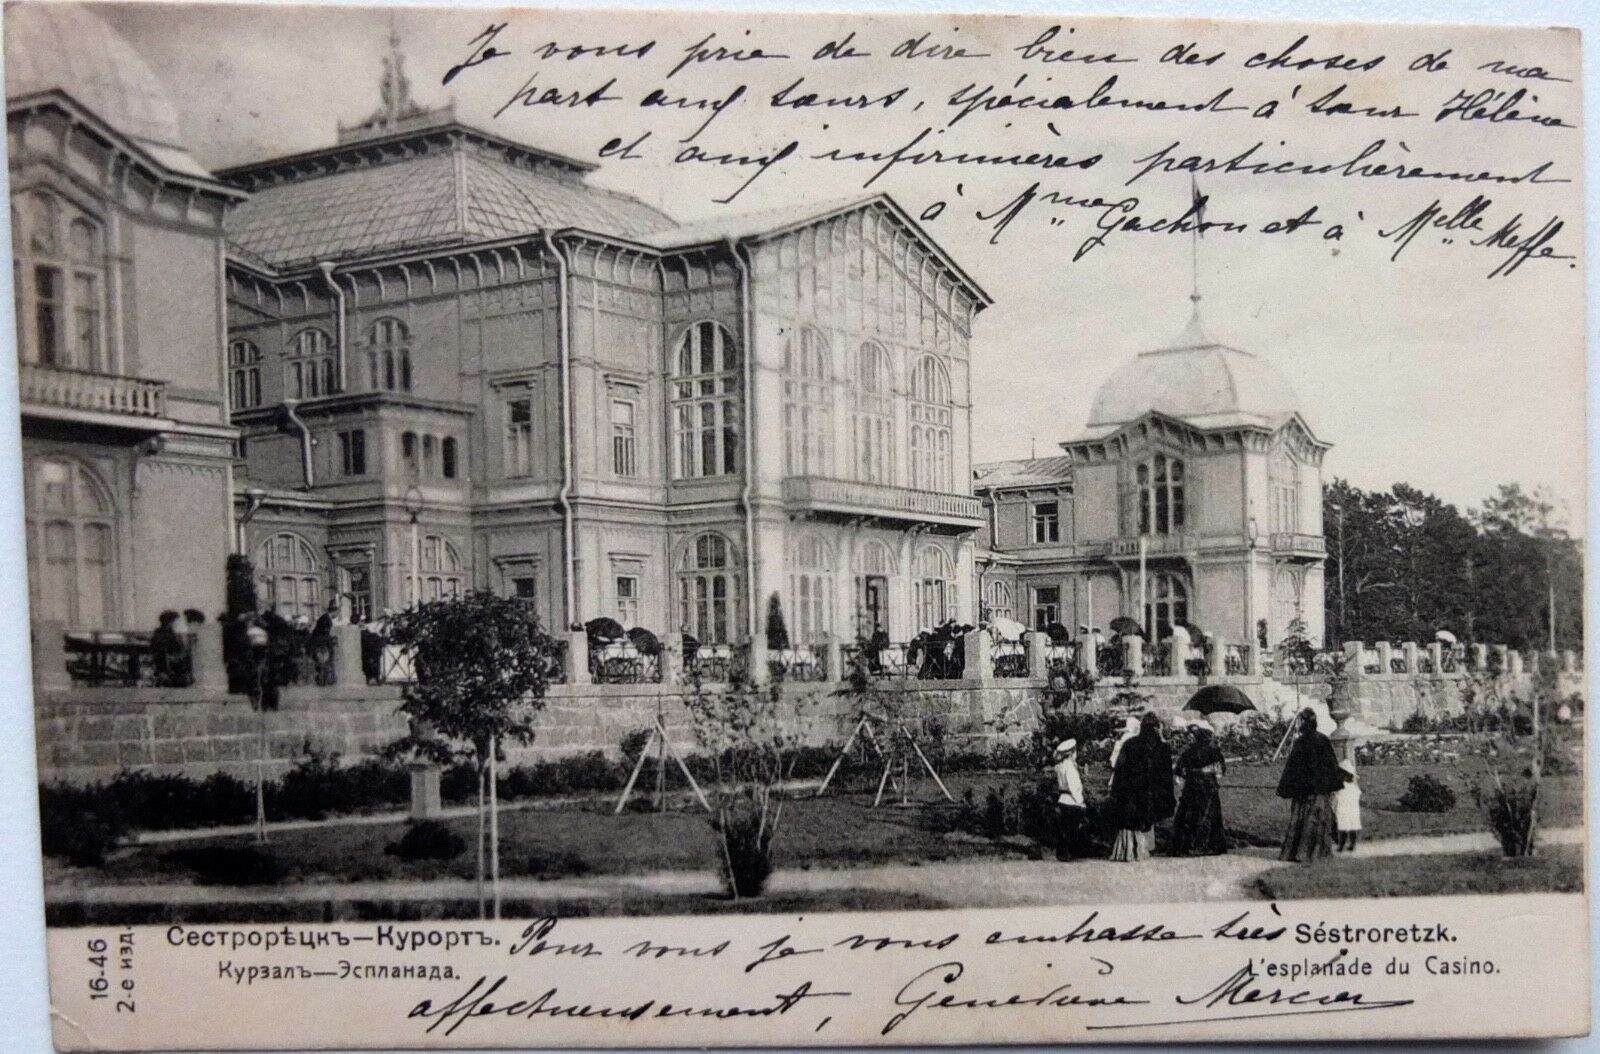 Je vous prie de dire bien des choses de ma
part aux sœurs, spécialement à sœur Hélène
et aux infirmières particulièrement
à Mme Gachon et à Melle Keffe.
16-46
2-е изд.
Сестрорѣцкъ—Курортъ.
Курзалъ—Эспланада.
Séstroretzk.
L'esplanade du Casino.
Pour vous je vous embrasse très
affectueusement, Geneviève Mercier